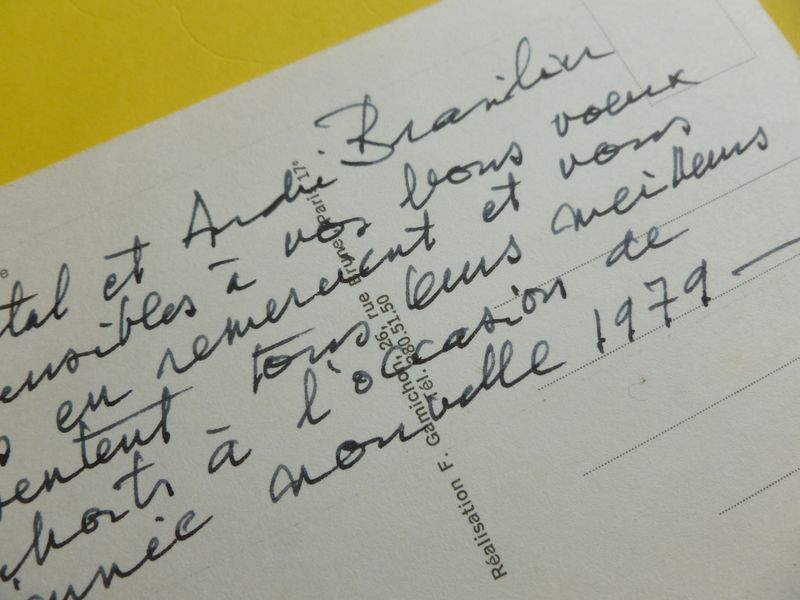 tal et André Brasilier
ensibles à vos bons voeux
s en remerciant et vous
sentent tous leurs meilleurs
uhaits à l'occasion de
année nouvelle 1979 —
Réalisation F. Gamichon, 26, rue Brunel, Paris 17° Tél. 380.51.50
®